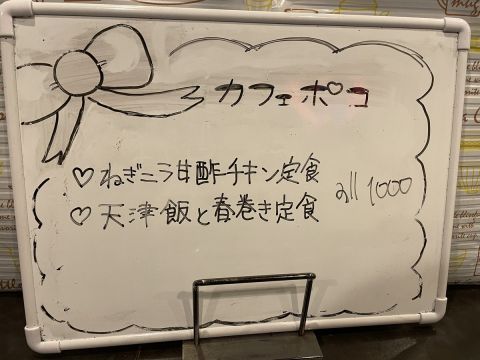 カフェポコ
♡ねぎニラ甘酢チキン定食
♡天津飯と春巻き定食
all 1000